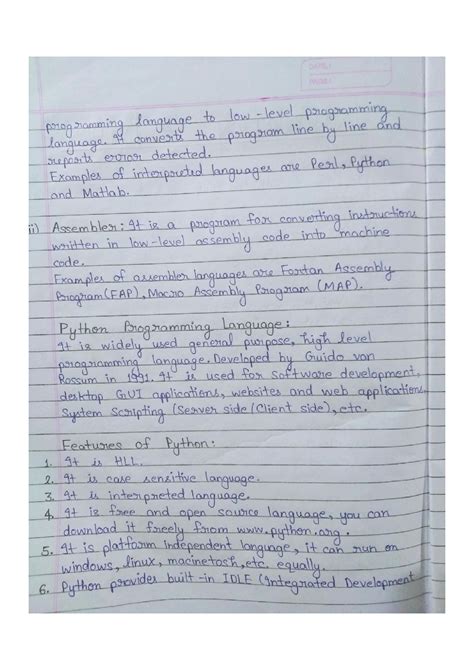 DATE:
PAGE:
programming language to low-level programming
language. It converts the program line by line and
reports error detected.
Examples of interpreted languages are Perl, Python
and Matlab.
ii) Assembler: It is a program for converting instructions
written in low-level assembly code into machine
code.
Examples of assembler languages are Fortan Assembly
Program (FAP), Macro Assembly Program (MAP).
Python Programming Language:
It is widely used general purpose, high level
programming language. Developed by Guido van
Rossum in 1991. It is used for software development,
desktop GUI applications, websites and web applications,
System Scripting (Server side/Client side), etc.
Features of Python:
1. It is HLL.
2. It is case sensitive language.
3. It is interpreted language.
4. It is free and open source language, you can
download it freely from www.python.org.
5. It is platform independent language, it can run on
windows, linux, macinetosh, etc. equally.
6. Python provides built-in IDLE (Integrated Development